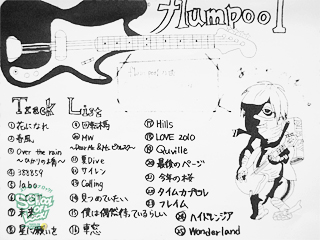 flumpool
Track List
① 花になれ
② 春風
③ Over the rain
～ひかりの橋～
④ 388859
⑤ labo
⑦ 未来
⑧ 星に願いを
⑨ 回転木馬
⑩ MW
～Dear Mr. & Ms. ピカレスク～
⑪ 夏Dive
⑫ サイレン
⑬ Calling
⑭ 見つめていたい
⑮ 僕は偶然を待っているらしい
⑯ 車窓
⑰ Hills
⑱ LOVE 2010
⑲ Quville
⑳ 最後のページ
㉑ 今年の桜
㉒ タイムカプセル
㉓ フレイム
㉔ ハイドレンジア
㉕ Wonderland